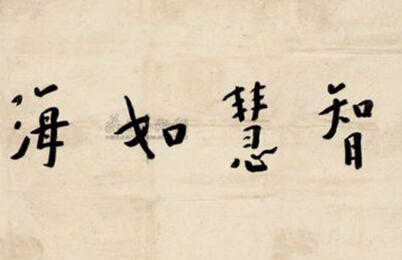 智慧如海